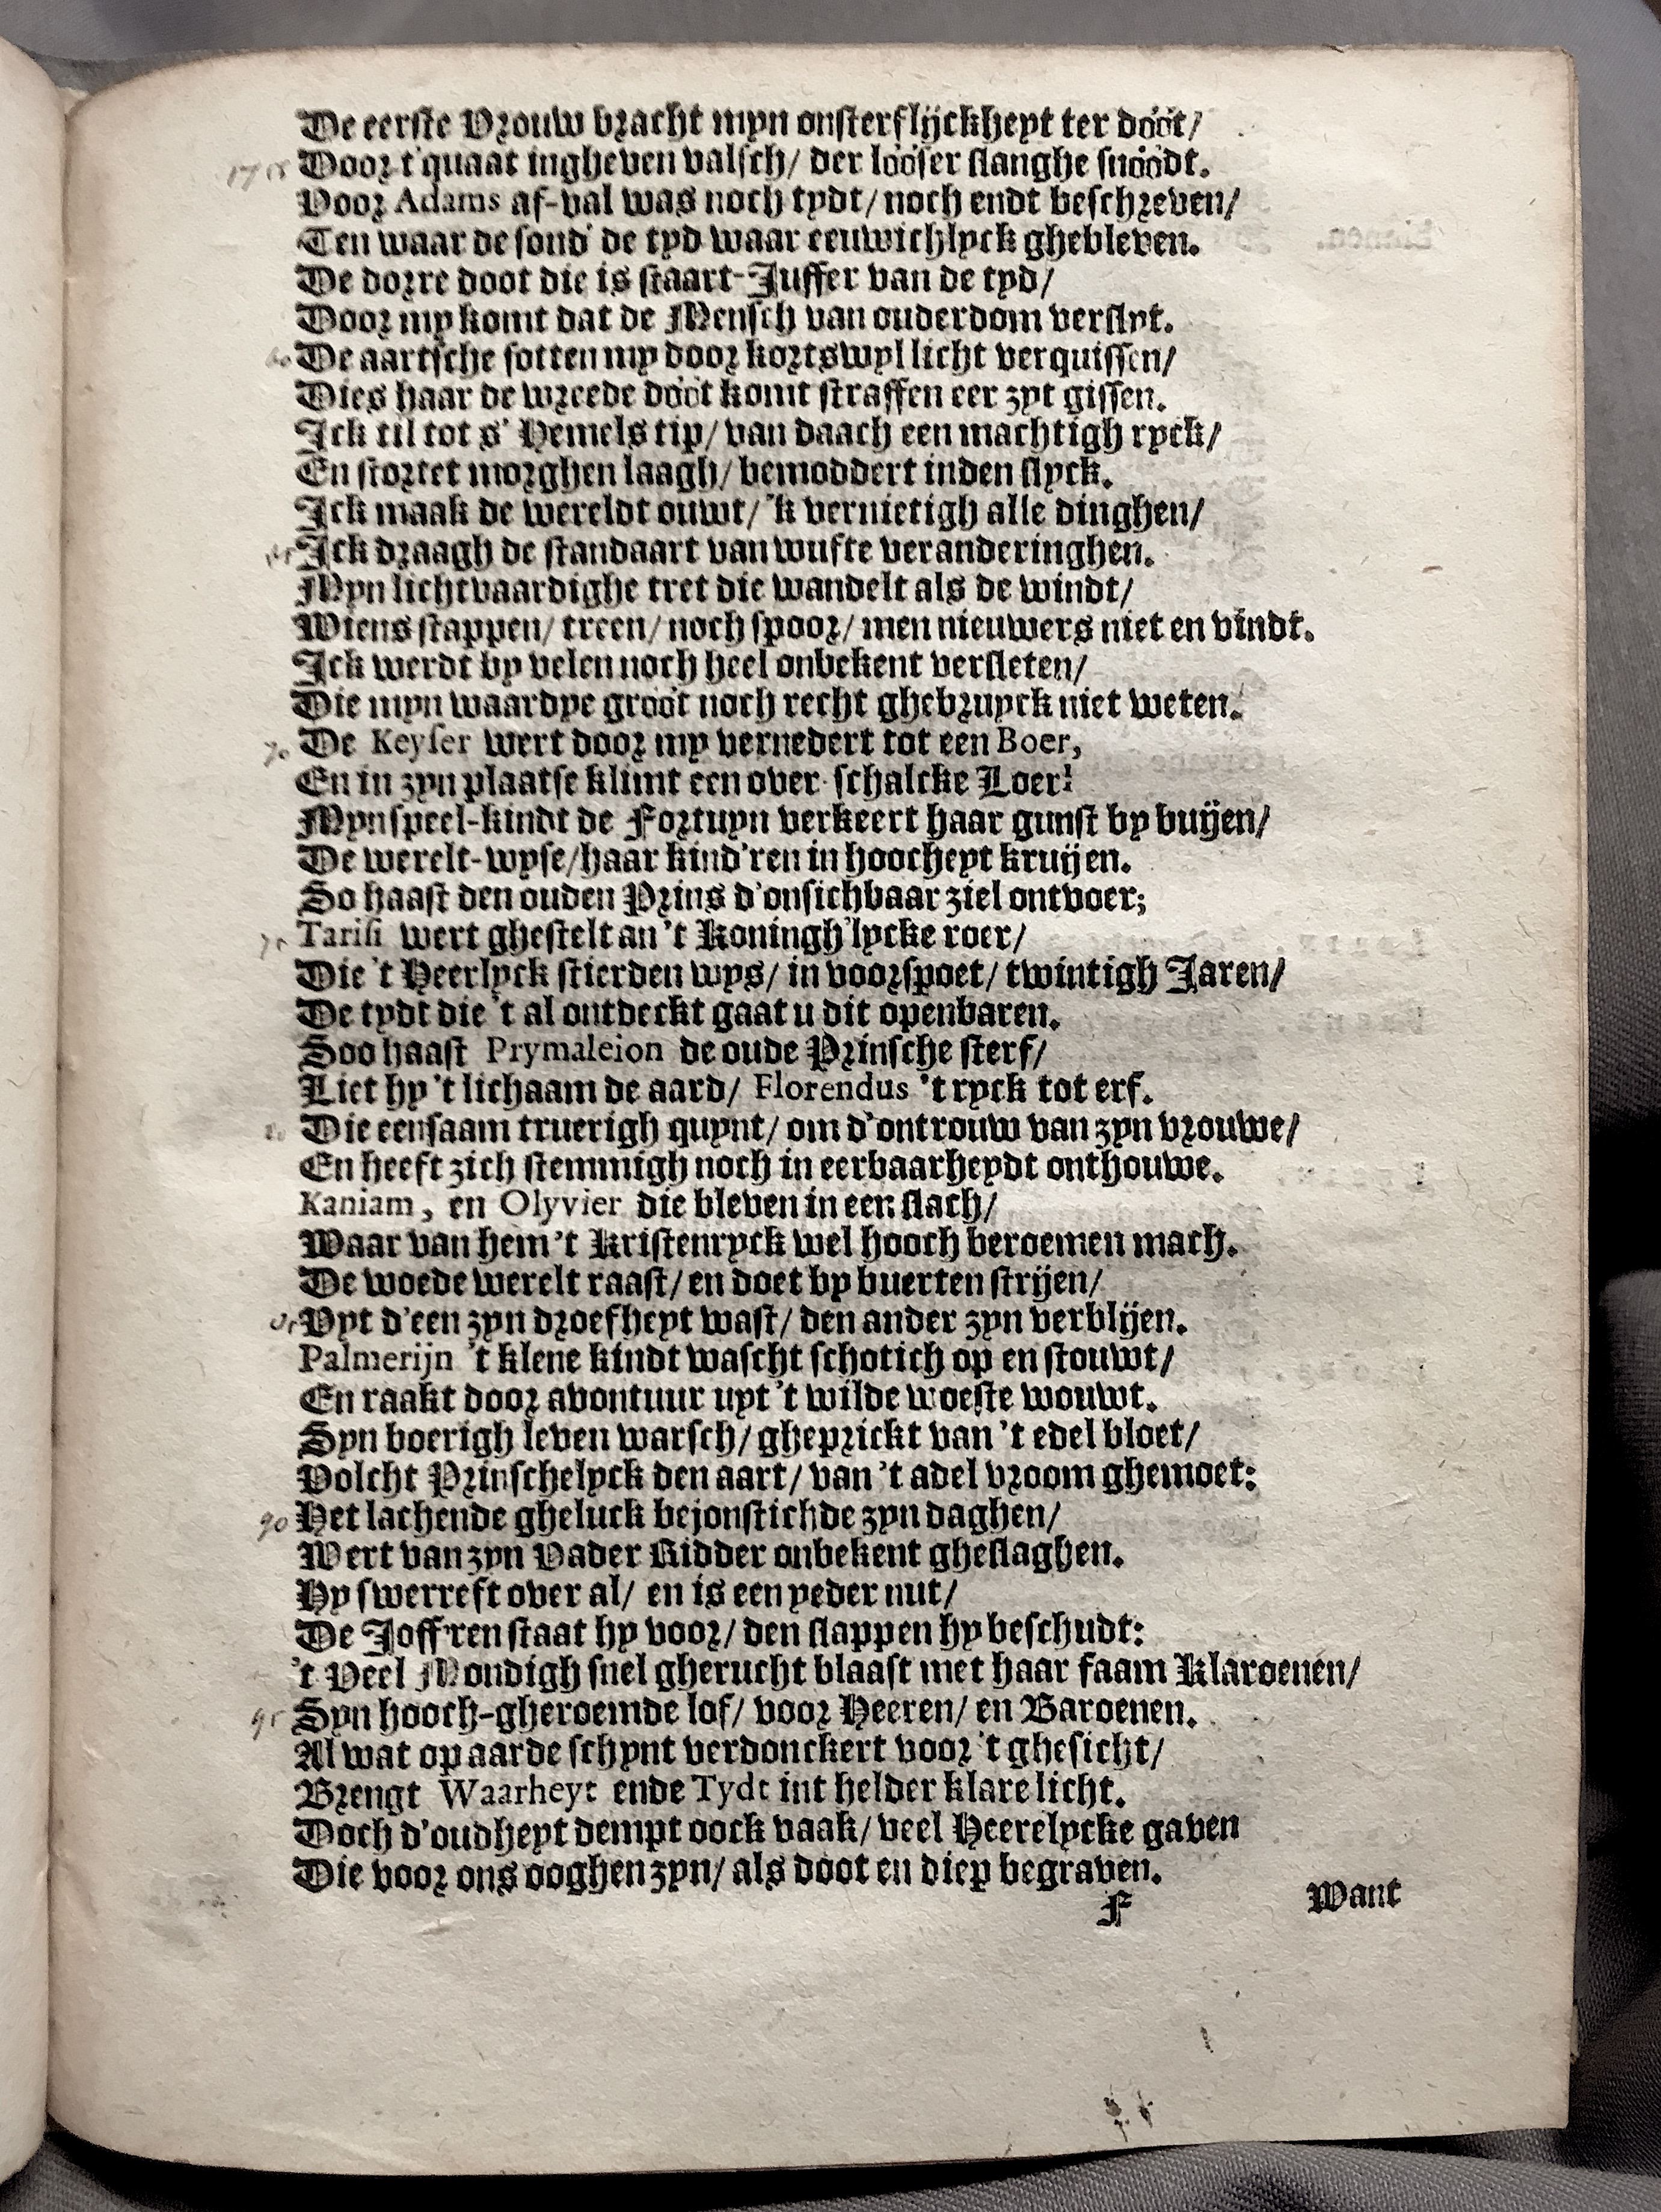 De eerste Vrouw bracht myn onsterflijckheyt ter dööt/
Door t'quaat ingheven valsch/ der lööser slanghe snöödt.
Voor Adams af-val was noch tydt/ noch endt beschreven/
Ten waar de sond' de tyd waar eeuwichlyck ghebleven.
De dorre doot die is staart-Juffer van de tyd/
Door my komt dat de Mensch van ouderdom verslyt.
60 De aartsche sotten my door kortswyl licht verquissen/
Dies haar de wreede dööt komt straffen eer zyt gissen.
Ick til tot s' Hemels tip/ van daach een machtigh ryck/
En stortet morghen laagh/ bemoddert inden slyck.
Ick maak de wereldt ouwt/ 'k vernietigh alle dinghen/
65 Ick draagh de standaart van wufte veranderinghen.
Myn lichtvaardighe tret die wandelt als de windt/
Wiens stappen/ treen/ noch spoor/ men nieuwers niet en vindt.
Ick werdt by velen noch heel onbekent versleten/
Die myn waardye gröot noch recht ghebruyck niet weten.
70 De Keyser wert door my vernedert tot een Boer,
En in zyn plaatse klimt een over-schalcke Loer!
Myn speel-kindt de Fortuyn verkeert haar gunst by buijen/
De werelt-wyse/ haar kind'ren in hoocheyt kruijen.
So haast den ouden Prins d'onsichbaar ziel ontvoer;
75 Tarisi wert ghestelt an 't Koningh'lycke roer/
Die 't Heerlyck stierden wys/ in voorspoet/ twintigh Jaren/
De tydt die 't al ontdeckt gaat u dit openbaren.
Soo haast Prymaleion de oude Prinsche sterf/
Liet hy 't lichaam de aard/ Florendus 't ryck tot erf.
80 Die eensaam truerigh quynt/ om d'ontrouw van zyn vrouwe/
En heeft zich stemmigh noch in eerbaarheydt onthouwe.
Kaniam, en Olyvier die bleven in een slach/
Waar van hem 't Kristenryck wel hooch beroemen mach.
De woede werelt raast/ en doet by buerten strijen/
85 Uyt d'een zyn droefheyt wast/ den ander zyn verblijen.
Palmerijn 't klene kindt wascht schotich op en stouwt/
En raakt door avontuur uyt 't wilde woeste wouwt.
Syn boerigh leven warsch/ gheprickt van 't edel bloet/
Volcht Prinschelyck den aart/ van 't adel vroom ghemoet:
90 Het lachende gheluck bejonstichde zyn daghen/
Wert van zyn Vader Ridder onbekent gheslaghen.
Hy swerreft over al/ en is een yeder nut/
De Joff'ren staat hy voor/ den slappen hy beschudt:
't Veel Mondigh snel gherucht blaast met haar faam Klaroenen/
95 Syn hooch-gheroemde lof/ voor Heeren/ en Baroenen.
Al wat op aarde schynt verdonckert voor 't ghesicht/
Brengt Waarheyt ende Tydt int helder klare licht.
Doch d'oudheyt dempt oock vaak/ veel Heerelycke gaven
Die voor ons ooghen zyn/ als doot en diep begraven.
F Want